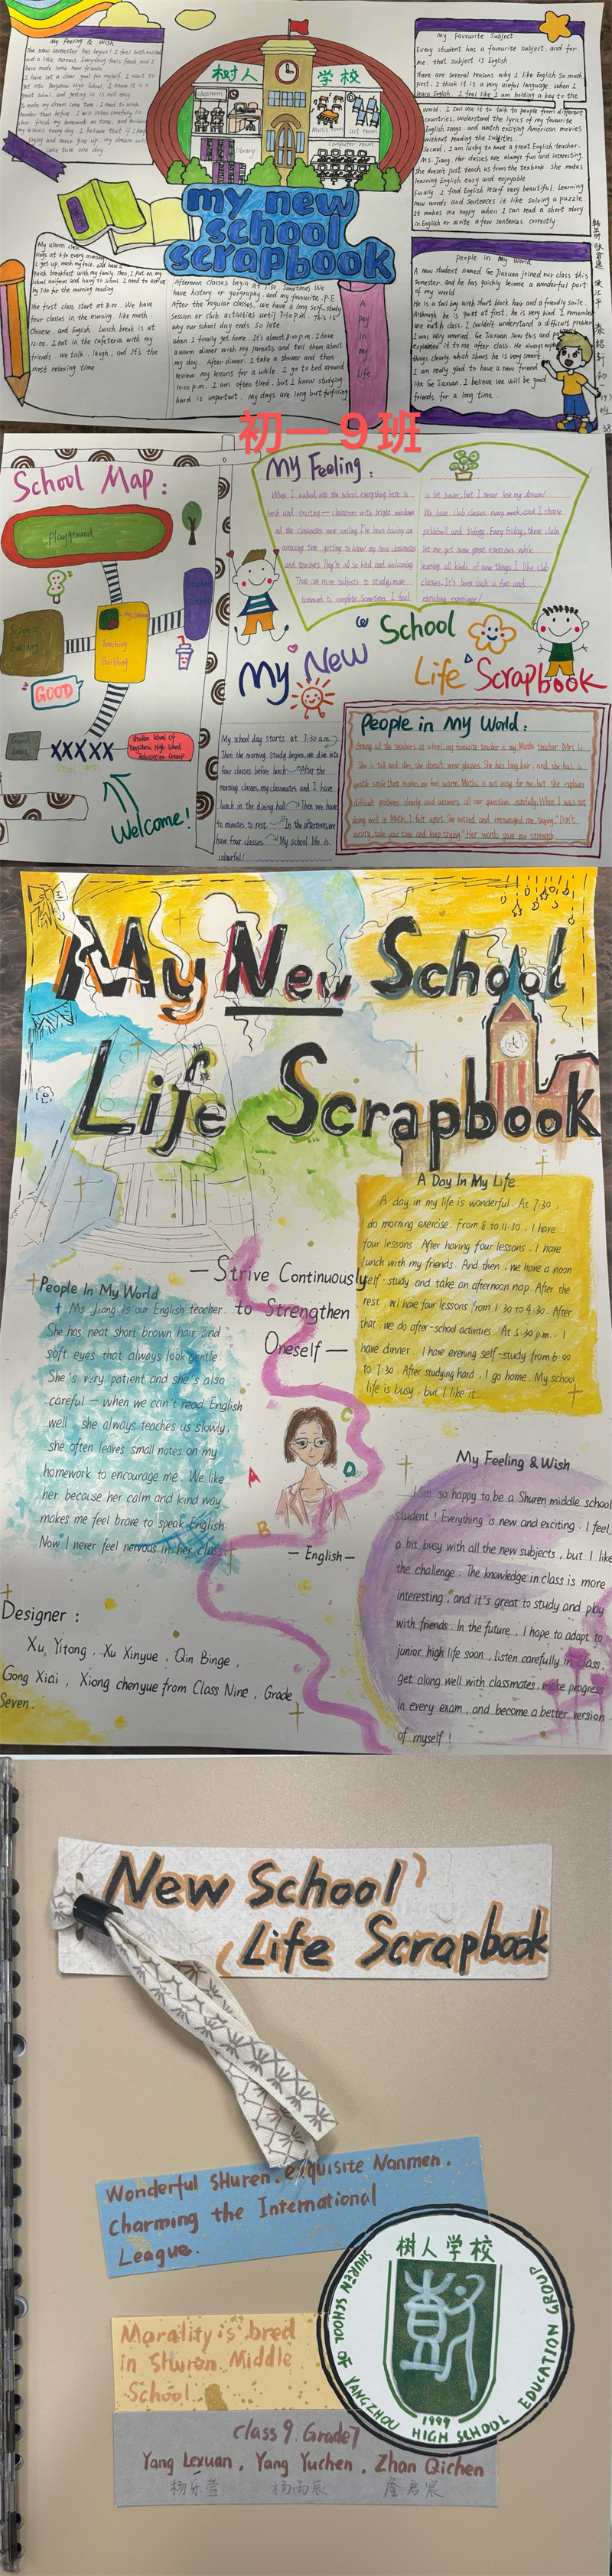 My Feeling & Wish
The new semester has begun! I feel both excited
and a little nervous. Everything feels fresh, and I
have made some new friends.
I have set a clear goal for myself: I want to
get into Yangzhou High School. I know it is a
great school, and getting in is not easy.
To make my dream come true, I need to work
harder than before. I will listen carefully in
class, finish my homework on time, and review
my lessons every day. I believe that if I keep
trying and never give up, my dream will
come ture one day.
树人 学校
classroom
library
Music room
Art room
Computer room
my new
school
scrapbook
My Favourite Subject
Every student has a favourite subject, and for
me, that subject is English.
There are several reasons why I like English so much.
First, I think it is a very useful language. When I
learn English, I feel like I am holding a key to the
world. I can use it to talk to people from different
countries, understand the lyrics of my favourite
English songs, and watch exciting American movies
without reading the subtitles.
Second, I am lucky to have a great English teacher,
Ms. Jiang. Her classes are always fun and interesting.
She doesn't just teach us from the textbook. She makes
learning English easy and enjoyable.
Finally, I find English itself very beautiful. Learning
new words and sentences is like solving a puzzle.
It makes me happy when I can read a short story
in English or write a few sentences correctly.
My alarm clock
rings at 6:30 every morning
I get up, wash my face, and have a
quick breakfast with my family. Then, I put on my
school uniform and hurry to school. I need to arrive
by 7:30 for the morning reading.
The first class start at 8:00. We have
four classes in the morning, like math,
Chinese, and English. Lunch break is at
12:00. I eat in the cafeteria with my
friends. We talk, laugh, and it's the
most relaxing time.
Afternoon classes begin at 1:30. Sometimes, We
have history or geography, and my favourite, P.E
After the regular classes, we have a long self-study
session or club activities until 7:30 p.m. This is
why our school day ends so late.
when I finally get home, it's almost 8:00 p.m. I have
a warm dinner with my parents and tell them about
my day. After dinner, I take a shower and then
review my lessons for a while. I go to bed around
10:00 p.m. I am often tired, but I know studying
hard is important. My days are long but fulfilling
A
Day
In
my
Life
People in My World
A new student named Ge Jiaxuan joined our class this
semester, and he has quickly become a wonderful part
of my world.
He is a tall boy with short black hair and a friendly smile.
Although he is quiet at first, he is very kind. I remember
one math class, I couldn't understand a difficult problem
I was very worried. Ge Jiaxuan saw this and patiently
explained it to me after class. He always explains
things clearly, which shows he is very smart.
I am really glad to have a new friend
like Ge Jiaxuan. I believe we will be good
friends for a long time.
初一9班
School Map:
playground
Science
Building
Teaching
Building
My classroom
GOOD
School gate
Shuren School of
Yangzhou High School
Education Group
Welcome!
My Feeling:
When I walked into the school, everything here is
fresh and exciting — classroom with bright windows
all the classmates were smiling. I've been having an
amazing time getting to know my new classmates
and teachers. They're all so kind and welcoming.
There are more subjects to study, more
homework to complete. Sometimes I feel
a bit busier, but I never lose my dream!
We have club classes every week, and I choose
pickleball and biology. Every Friday, these clubs
let me get some great exercises while
learning all kinds of new things. I like club
classes. It's been such a fun and
enriching experience!
My New School
Life Scrapbook
My school day starts at 7:30 a.m.
Then the morning study begins, we dive into
four classes before lunch. After the
morning classes, my classmates and I have
lunch in the dining hall. Then we have
to minutes to rest. In the afternoon, we
have four classes. My school life is
colourful!
People in My World:
Among all the teachers at school, my favourite teacher is my Maths teacher Mrs Li.
She is tall and slim, she doesn't wear glasses. She has long hair, and she has a
gentle smile that makes me feel warm. Maths is not easy for me, but she explains
difficult problems clearly and answers all our question carefully. When I was not
doing well in Maths, I felt upset. She noticed and encouraged me, saying, "Don't
worry, take your time and keep trying." Her words gave me strength.
My New School
Life Scrapbook
A Day In My Life
A day in my life is wonderful. At 7:30,
I do morning exercise. From 8 to 11:30, I have
four lessons. After having four lessons, I have
lunch with my friends. And then, we have a noon
self-study and take an afternoon nap. After the
rest, we have four lessons from 1:30 to 4:30. After
that, we do after-school activities. At 5:30 p.m., I
have dinner. I have evening self-study from 6:00
to 7:30. After studying hard, I go home. My school
life is busy, but I like it.
— Strive Continuously
to Strengthen
Oneself —
People In My World
Ms Jiang is our English teacher.
She has neat short brown hair and
soft eyes that always look gentle.
She's very patient and she's also
careful — when we can't read English
well, she always teaches us slowly,
she often leaves small notes on my
homework to encourage me. We like
her because her calm and kind way
makes me feel brave to speak English.
Now I never feel nervous in her class.
A
B
C
D
— English —
My Feeling & Wish
I'm so happy to be a Shuren middle school
student! Everything is new and exciting. I feel
a bit busy with all the new subjects, but I like
the challenge. The knowledge in class is more
interesting, and it's great to study and play
with friends. In the future, I hope to adapt to
junior high life soon, listen carefully in class,
get along well with classmates, make progress
in every exam, and become a better version
of myself!
Designer:
Xu Yitong, Xu Xinyue, Qin Binge,
Gong Xiai, Xiong chenyue from Class Nine, Grade
Seven.
New School
Life Scrapbook
Wonderful Shuren, exquisite Nanmen,
charming the International
League.
Morality is bred
in Shuren Middle
School.
树人学校
SHUREN SCHOOL OF YANGZHOU HIGH SCHOOL EDUCATION GROUP
1999
Class 9, Grade 7
Yang Lexuan, Yang Yuchen, Zhan Qichen
杨乐萱 杨雨辰